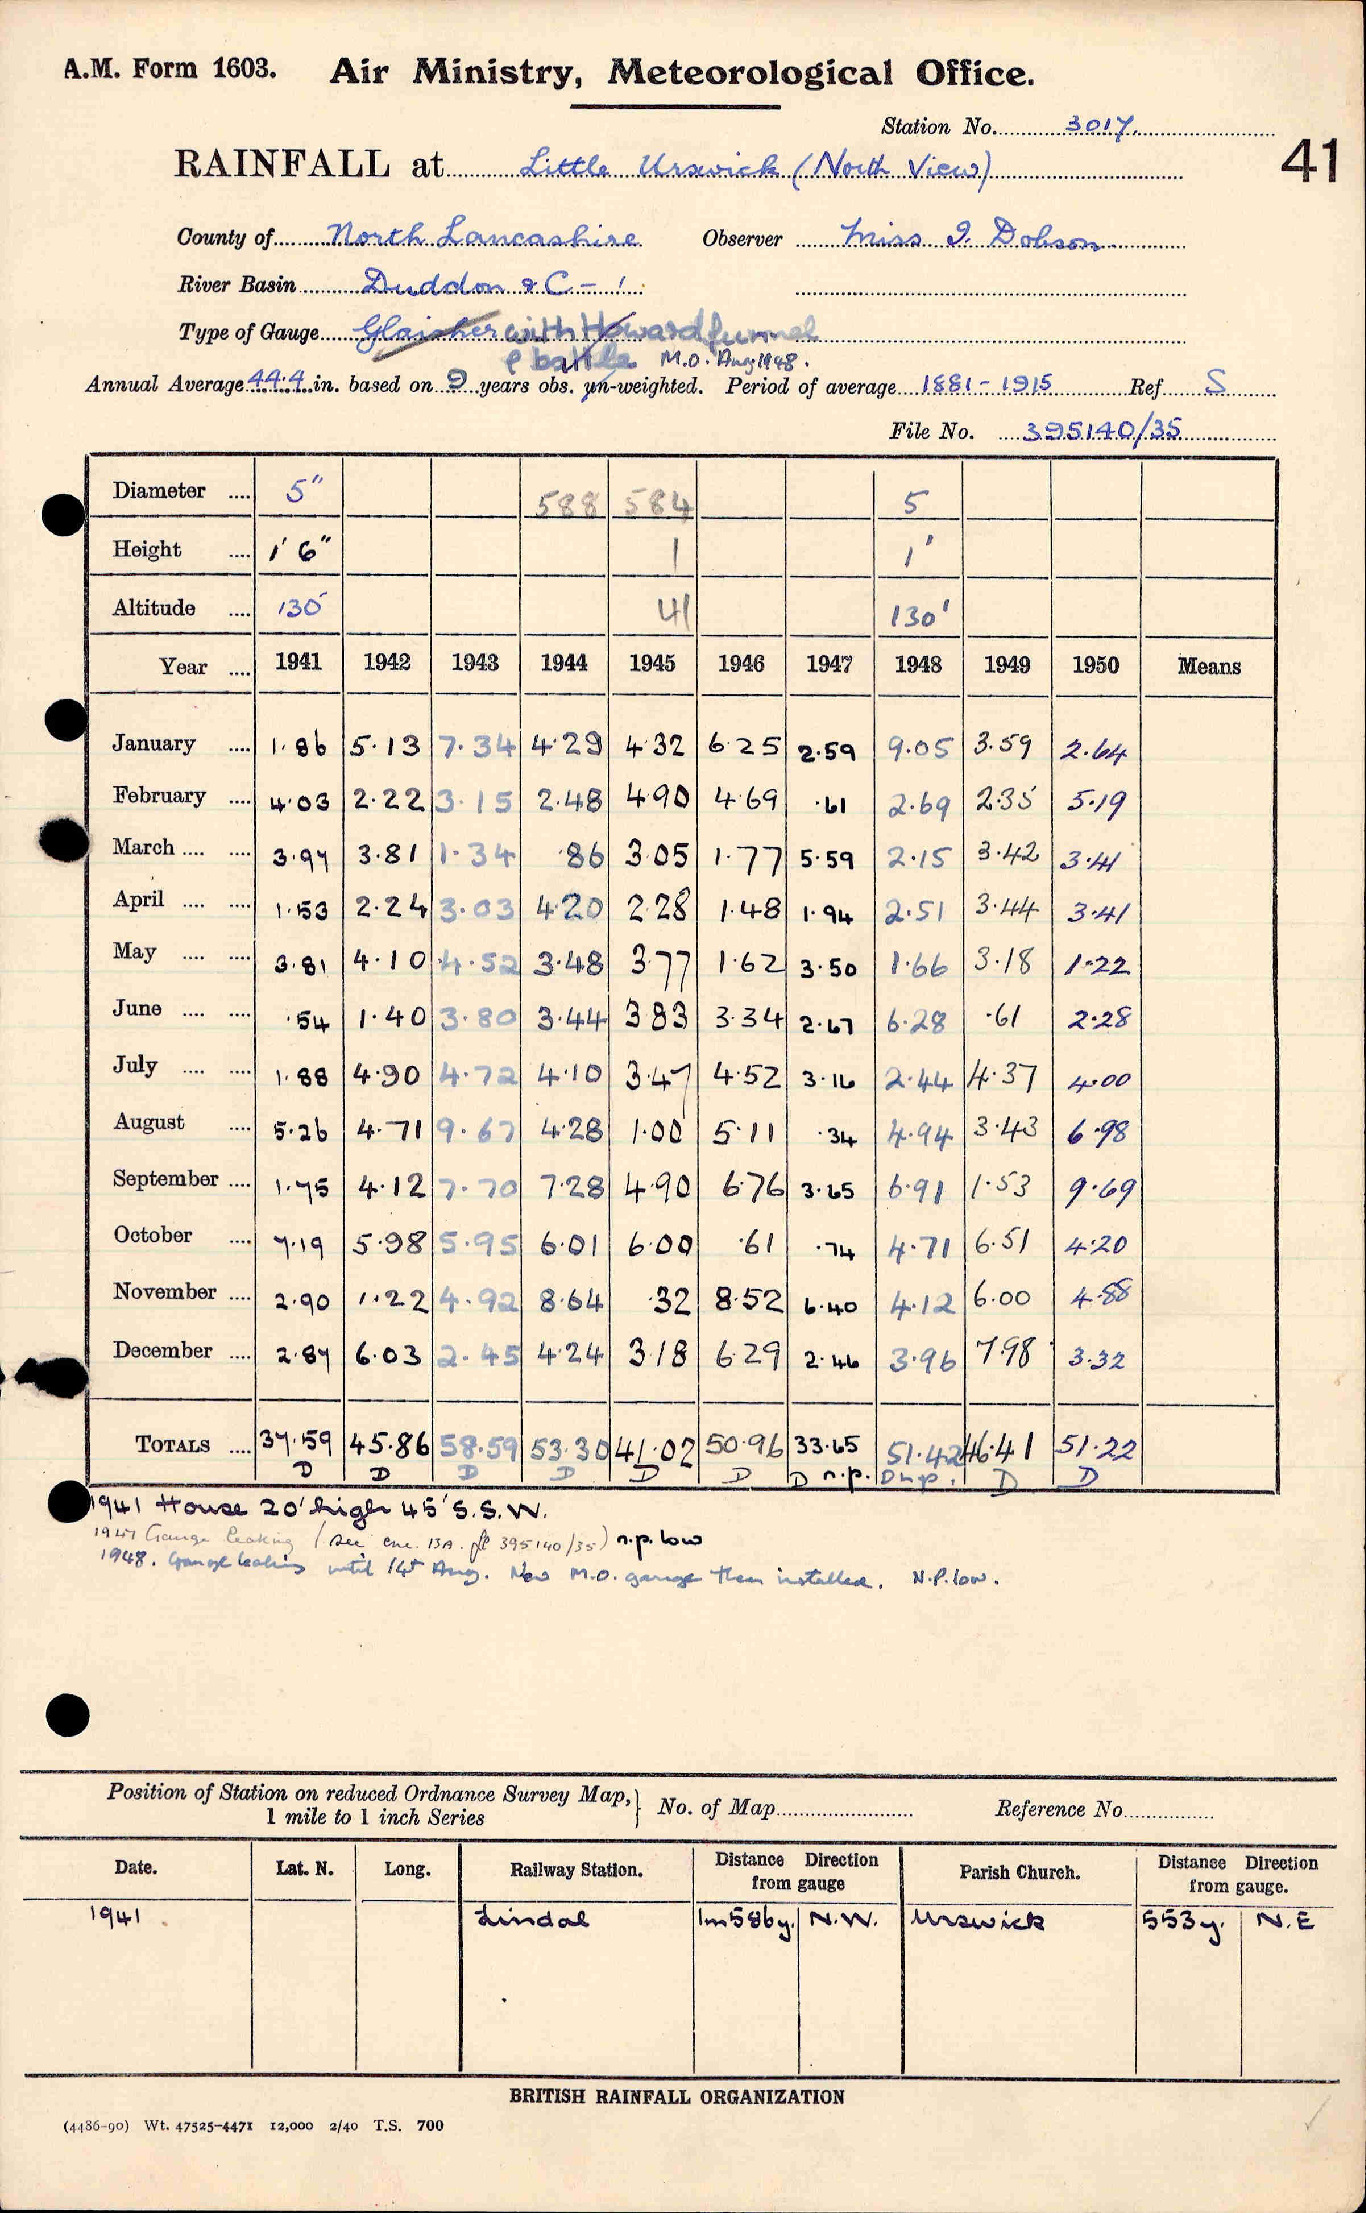 A.M. Form 1603. Air Ministry, Meteorological Office.
Station No. 3017.
41
RAINFALL at Little Urswick (North View)
County of North Lancashire Observer Miss I. Dobson
River Basin Duddon & C - 1
Type of Gauge Glaisher with Howard funnel
& bottle M.O. Aug 1948.
Annual Average 44.4 in. based on 9 years obs. un-weighted. Period of average 1881-1915 Ref S
File No. 395140/35
Diameter .... 5" 588 584 5
Height .... 1' 6" 1 1'
Altitude .... 130' 41 130'
Year .... 1941 1942 1943 1944 1945 1946 1947 1948 1949 1950 Means
January .... 1.86 5.13 7.34 4.29 4.32 6.25 2.59 9.05 3.59 2.64
February .... 4.03 2.22 3.15 2.48 4.90 4.69 .61 2.69 2.35 5.19
March .... .... 3.97 3.81 1.34 .86 3.05 1.77 5.59 2.15 3.42 3.41
April .... .... 1.53 2.24 3.03 4.20 2.28 1.48 1.94 2.51 3.44 3.41
May .... .... 3.81 4.10 4.52 3.48 3.77 1.62 3.50 1.66 3.18 1.22
June .... .... .54 1.40 3.80 3.44 3.83 3.34 2.67 6.28 .61 2.28
July .... .... 1.88 4.90 4.72 4.10 3.47 4.52 3.16 2.44 4.37 4.00
August .... 5.26 4.71 9.67 4.28 1.00 5.11 .34 4.94 3.43 6.98
September .... 1.75 4.12 7.70 7.28 4.90 6.76 3.65 6.91 1.53 9.69
October .... 7.19 5.98 5.95 6.01 6.00 .61 .74 4.71 6.51 4.20
November .... 2.90 1.22 4.92 8.64 .32 8.52 6.40 4.12 6.00 4.88
December .... 2.87 6.03 2.45 4.24 3.18 6.29 2.46 3.96 7.98 3.32
TOTALS .... 37.59 45.86 58.59 53.30 41.02 50.96 33.65 51.42 46.41 51.22
D D D D D D D n.p. D n.p. D D
1941 House 20' high 45' S.S.W.
1947 Gauge leaking (see enc. 13A. of 395140/35) n.p. low
1948. Gauge leaking until 14th Aug. New M.O. gauge then installed. N.P. low.
Position of Station on reduced Ordnance Survey Map, 1 mile to 1 inch Series } No. of Map Reference No.
Date. Lat. N. Long. Railway Station. Distance Direction from gauge Parish Church. Distance Direction from gauge.
1941. Lindal 1m 586y. N.W. Urswick 553y. N.E
BRITISH RAINFALL ORGANIZATION
(4486-90) Wt. 47525-4471 12,000 2/40 T.S. 700